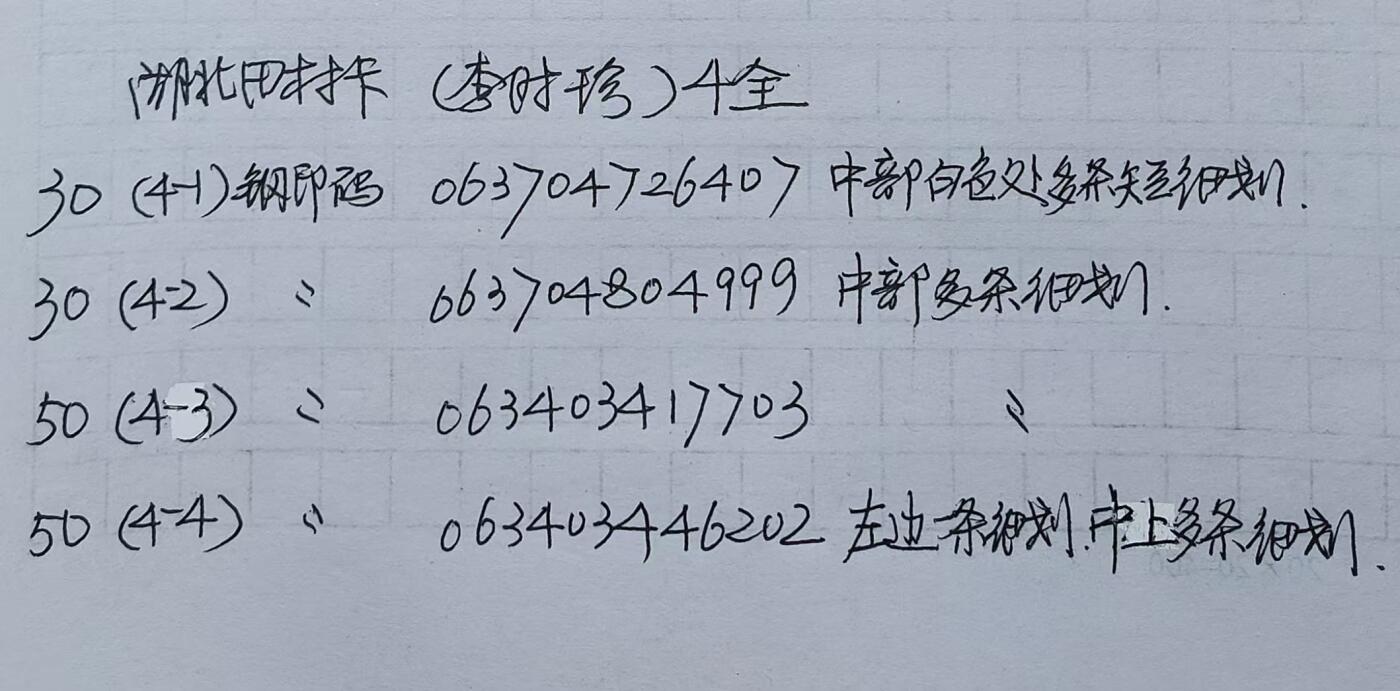 湖北田村卡 (李时珍) 4全
30 (4-1) 钢印码 063704726407 中部白色处多条短细划.
30 (4-2) 〃 063704804999 中部多条细划.
50 (4-3) 〃 063403417703 〃
50 (4-4) 〃 063403446202 左边一条细划.中上多条细划.